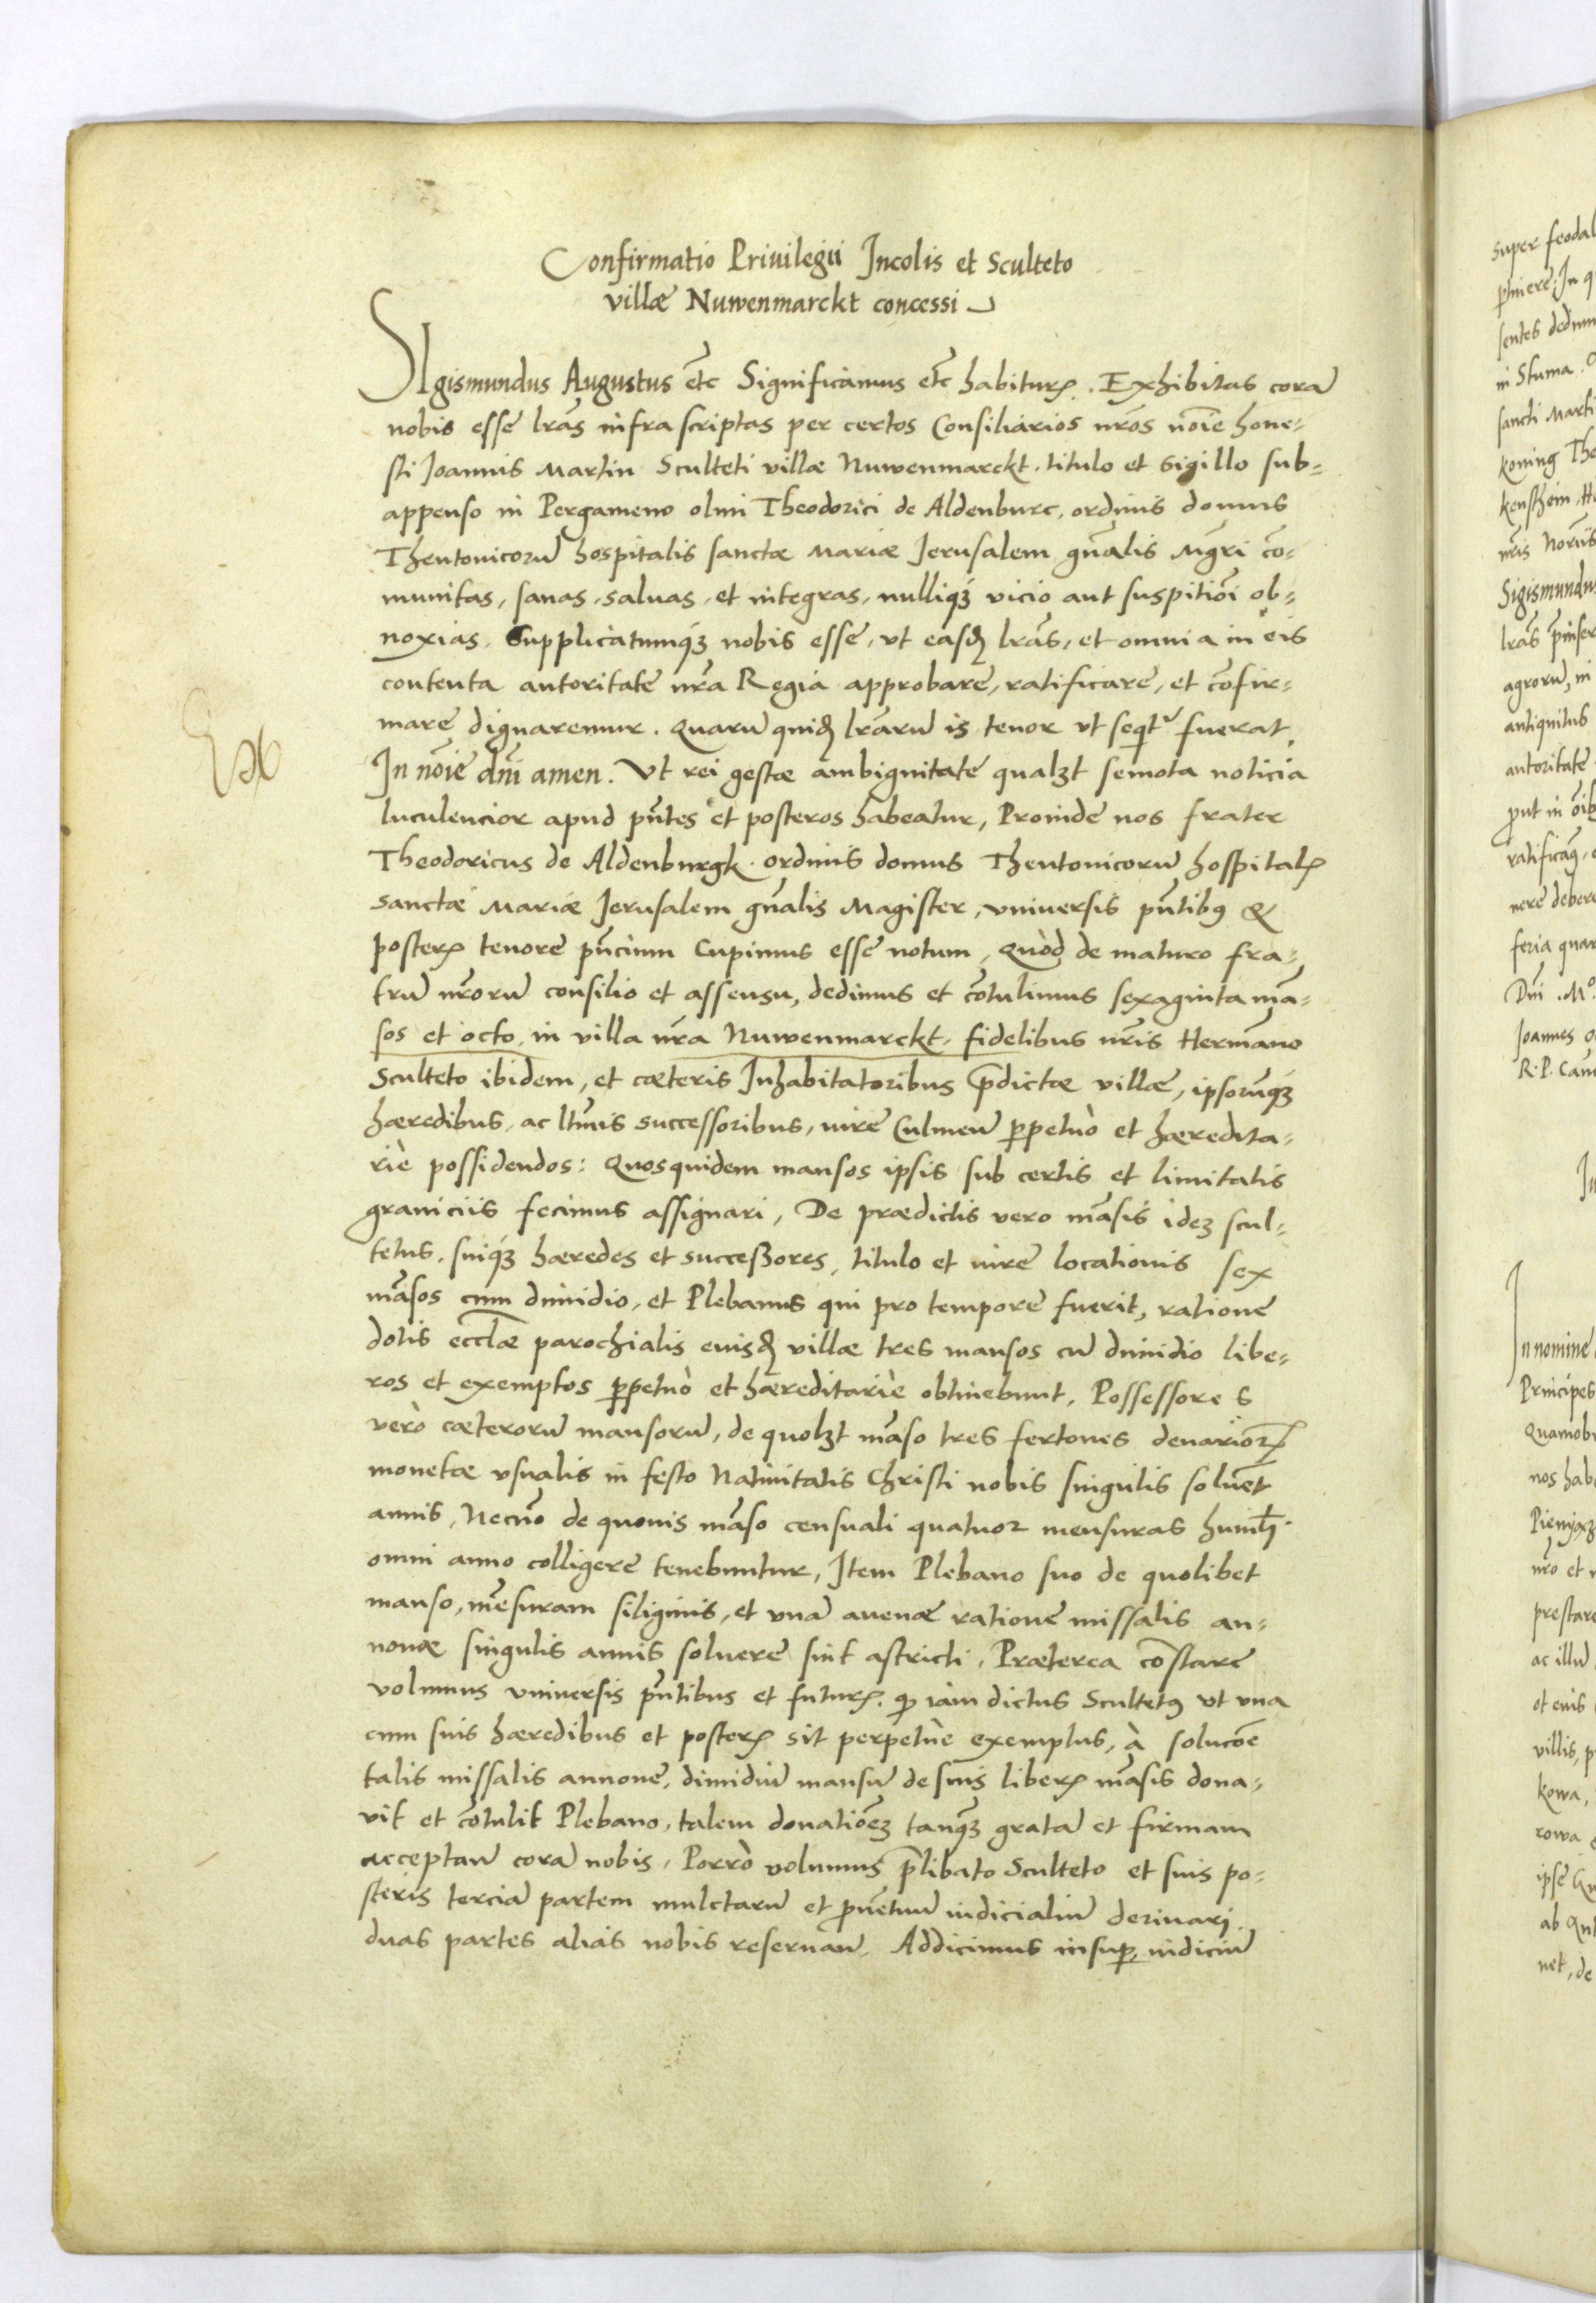 Confirmatio Priuilegii Incolis et Sculteto
villæ Nuwenmarckt concessi
Sigismundus Augustus etc Significamus etc habituris. Exhibitas corā
nobis esse lrās infra scriptas per certos Consiliarios nrōs noīe hone-
sti Joannis Martin Sculteti villæ Nuwenmarckt. titulo et sigillo sub-
appenso in Pergameno olim Theodorici de Aldenburc, ordinis domus
Theutonicorū hospitalis sanctæ Mariæ Jerusalem gnālis Mgrī cō-
munitas, sanas, saluas, et integras, nulliqȝ vicio aut suspitiōi ob-
noxias. Supplicatumqȝ nobis esse, vt easdē lrās, et omnia in eis
contenta autoritate nrā Regia approbare, ratificare, et cōfir-
mare dignaremur. Quarū quidē lrārū is tenor vt seqtr fuerat
In noīe dnī amen. Vt rei gestæ ambiguitate qualȝt semota noticia
luculencior apud pn̄tes et posteros habeatur, Proinde nos frater
Theodoricus de Aldenburgk. ordinis domus Theutonicorū hospitalis
sanctæ Mariæ Jerusalem gnālis Magister, vniuersis pn̄tibꝰ &
posteris tenore pn̄cium Cupimus esse notum, Quòd de maturo fra-
trū nrōrū consilio et assensu, dedimus et cōtulimus sexaginta mā-
sos et octo, in villa nrā Nuwenmarckt, fidelibus nrīs Hermāno
Sculteto ibidem, et cæteris Inhabitatoribus p̄dictæ villæ, ipsorūqȝ
hæredibus, ac ltīmis successoribus, iure Culmen̄ ꝑpetuò et hæredita-
riè possidendos: Quosquidem mansos ipsis sub certis et limitatis
graniciis fecimus assignari, De prædictis vero māsis ideȝ scul-
tetus, suiqȝ hæredes et successores, titulo et iure locationis sex
māsos cum dimidio, et Plebanus qui pro tempore fuerit, ratione
dotis ecclæ parochialis eiusdē villæ tres mansos cū dimidio libe-
ros et exemptos ꝑpetuò et hæreditariè obtinebunt, Possessores
verò cæterorū mansorū, de quolȝt māso tres fertones denariorꝝ
monetæ vsualis in festo Natiuitatis Christi nobis singulis soluēt
annis, Necnō de quouis māso censuali quatuor mensuras humuli
omni anno colligere tenebuntur, Item Plebano suo de quolibet
manso, mēsuram siliginis, et vnā auenæ ratione missalis an-
nonæ singulis annis soluere sint astricti, Præterea cōstare
volumus vniuersis pn̄tibus et futuris. qꝫ iam dictus Scultetꝰ vt vna
cum suis hæredibus et posteris sit perpetuè exemptus, à solucōe
talis missalis annone, dimidiū mansū de suis liberis māsis dona-
vit et cōtulit Plebano, talem donatiōeȝ tanqȝ gratā et firmam
acceptam̄ corā nobis, Porrò volumus p̄libato Sculteto et suis po-
steris terciā partem mulctarū et ꝓuētuū iudicialiū deriuari.
duas partes alias nobis reseruan̄. Addicimus insuꝑ, iudiciū
Ex
super feodal
in Stuma
sancti Marti
koning The
Sigismundu
agrorū, in
antiquitus
autoritate
nere debere
feria quar
Dnī. Mᵒ
Joannes
R. P. Cam
In nomine
Principes
Quamobr
nos hab
nrō et
prestare
ac illū
villis, p
kowa,
rowa
ipse
ab
net, de